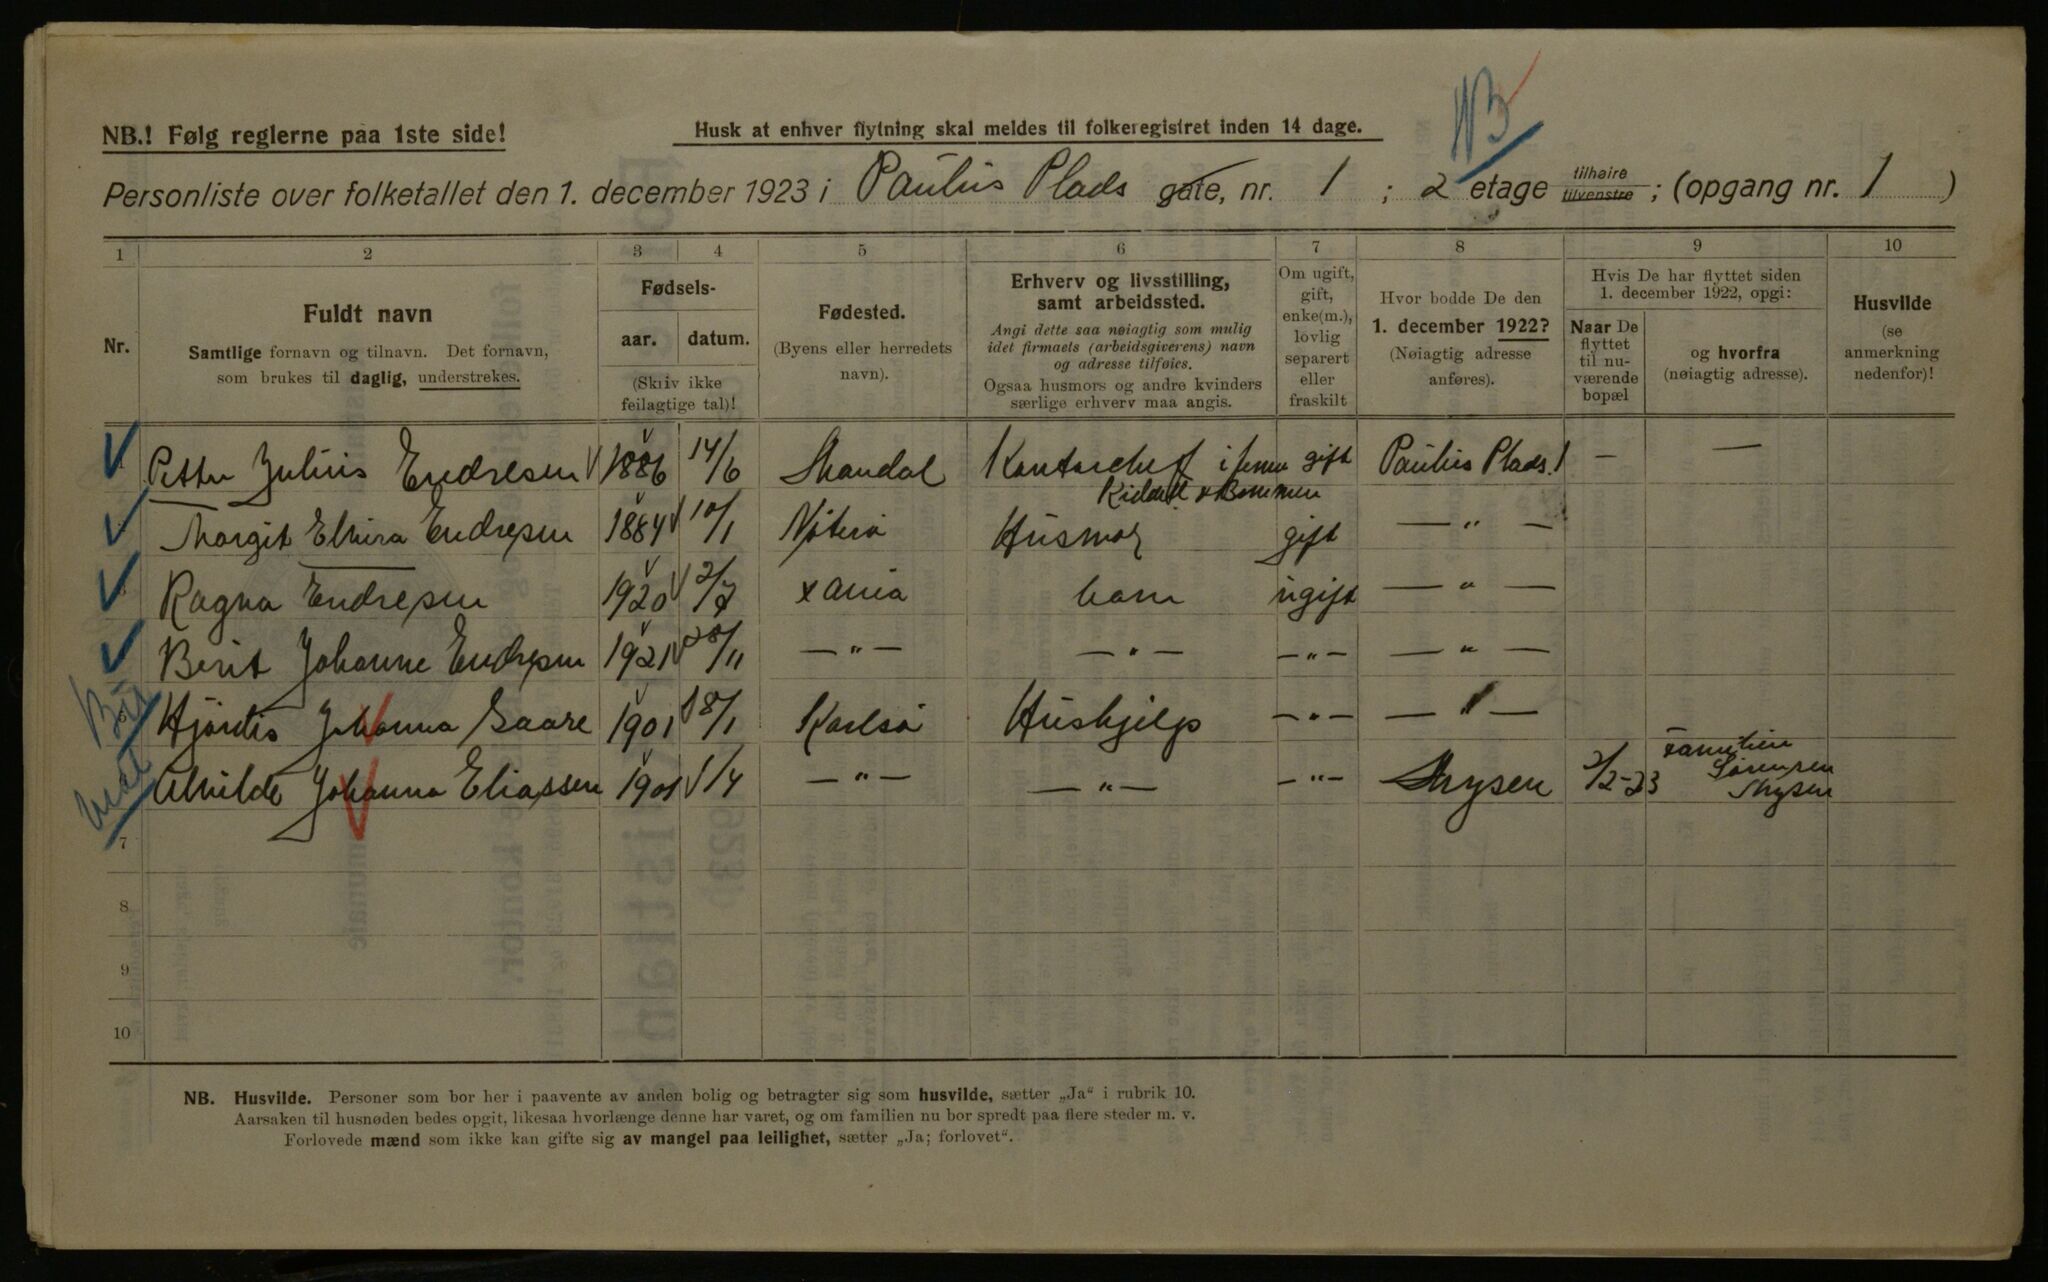 NB
NB.! Følg reglerne paa 1ste side!
Husk at enhver flytning skal meldes til folkeregistret inden 14 dage.
Personliste over folketallet den 1. december 1923 i Paulus Plads gate, nr. 1 ; 2 etage tilhøire tilvenstre ; (opgang nr. 1 )
1 2 3 4 5 6 7 8 9 10
Nr.
Fuldt navn
Samtlige fornavn og tilnavn. Det fornavn,
som brukes til daglig, understrekes.
Fødsels-
aar. datum.
(Skriv ikke
feilagtige tal)!
Fødested.
(Byens eller herredets
navn).
Erhverv og livsstilling,
samt arbeidssted.
Angi dette saa nøiagtig som mulig
idet firmaets (arbeidsgiverens) navn
og adresse tilføies.
Ogsaa husmors og andre kvinders
særlige erhverv maa angis.
Om ugift,
gift,
enke(m.),
lovlig
separert
eller
fraskilt
Hvor bodde De den
1. december 1922?
(Nøiagtig adresse
anføres).
Hvis De har flyttet siden
1. december 1922, opgi:
Naar De
flyttet
til nu-
værende
bopæl
og hvorfra
(nøiagtig adresse).
Husvilde
(se
anmerkning
nedenfor)!
Petter Julius Endresen 1886 14/6 Mandal Kontorchef i firma gift Paulus Plads 1 — —
Kiddell & Bommen
Margit Elvira Endresen 1884 10/1 Nøterø Husmor gift — " —
Ragna Endresen 1920 2/7 Xania barn ugift — " —
Berit Johanne Endresen 1921 28/11 — " — — " — — " — — " —
Hjördis Johanna Gaare 1901 18/1 Karlsø Hushjelp — " — — " —
Alvilde Johanna Eliassen 1901 1/4 — " — — " — — " — Mysen 2/2-23 Familien
Sørensen
Mysen
7
8
9
10
NB. Husvilde. Personer som bor her i paavente av anden bolig og betragter sig som husvilde, sætter „Ja“ i rubrik 10.
Aarsaken til husnøden bedes opgit, likesaa hvorlænge denne har varet, og om familien nu bor spredt paa flere steder m. v.
Forlovede mænd som ikke kan gifte sig av mangel paa leilighet, sætter „Ja; forlovet“.